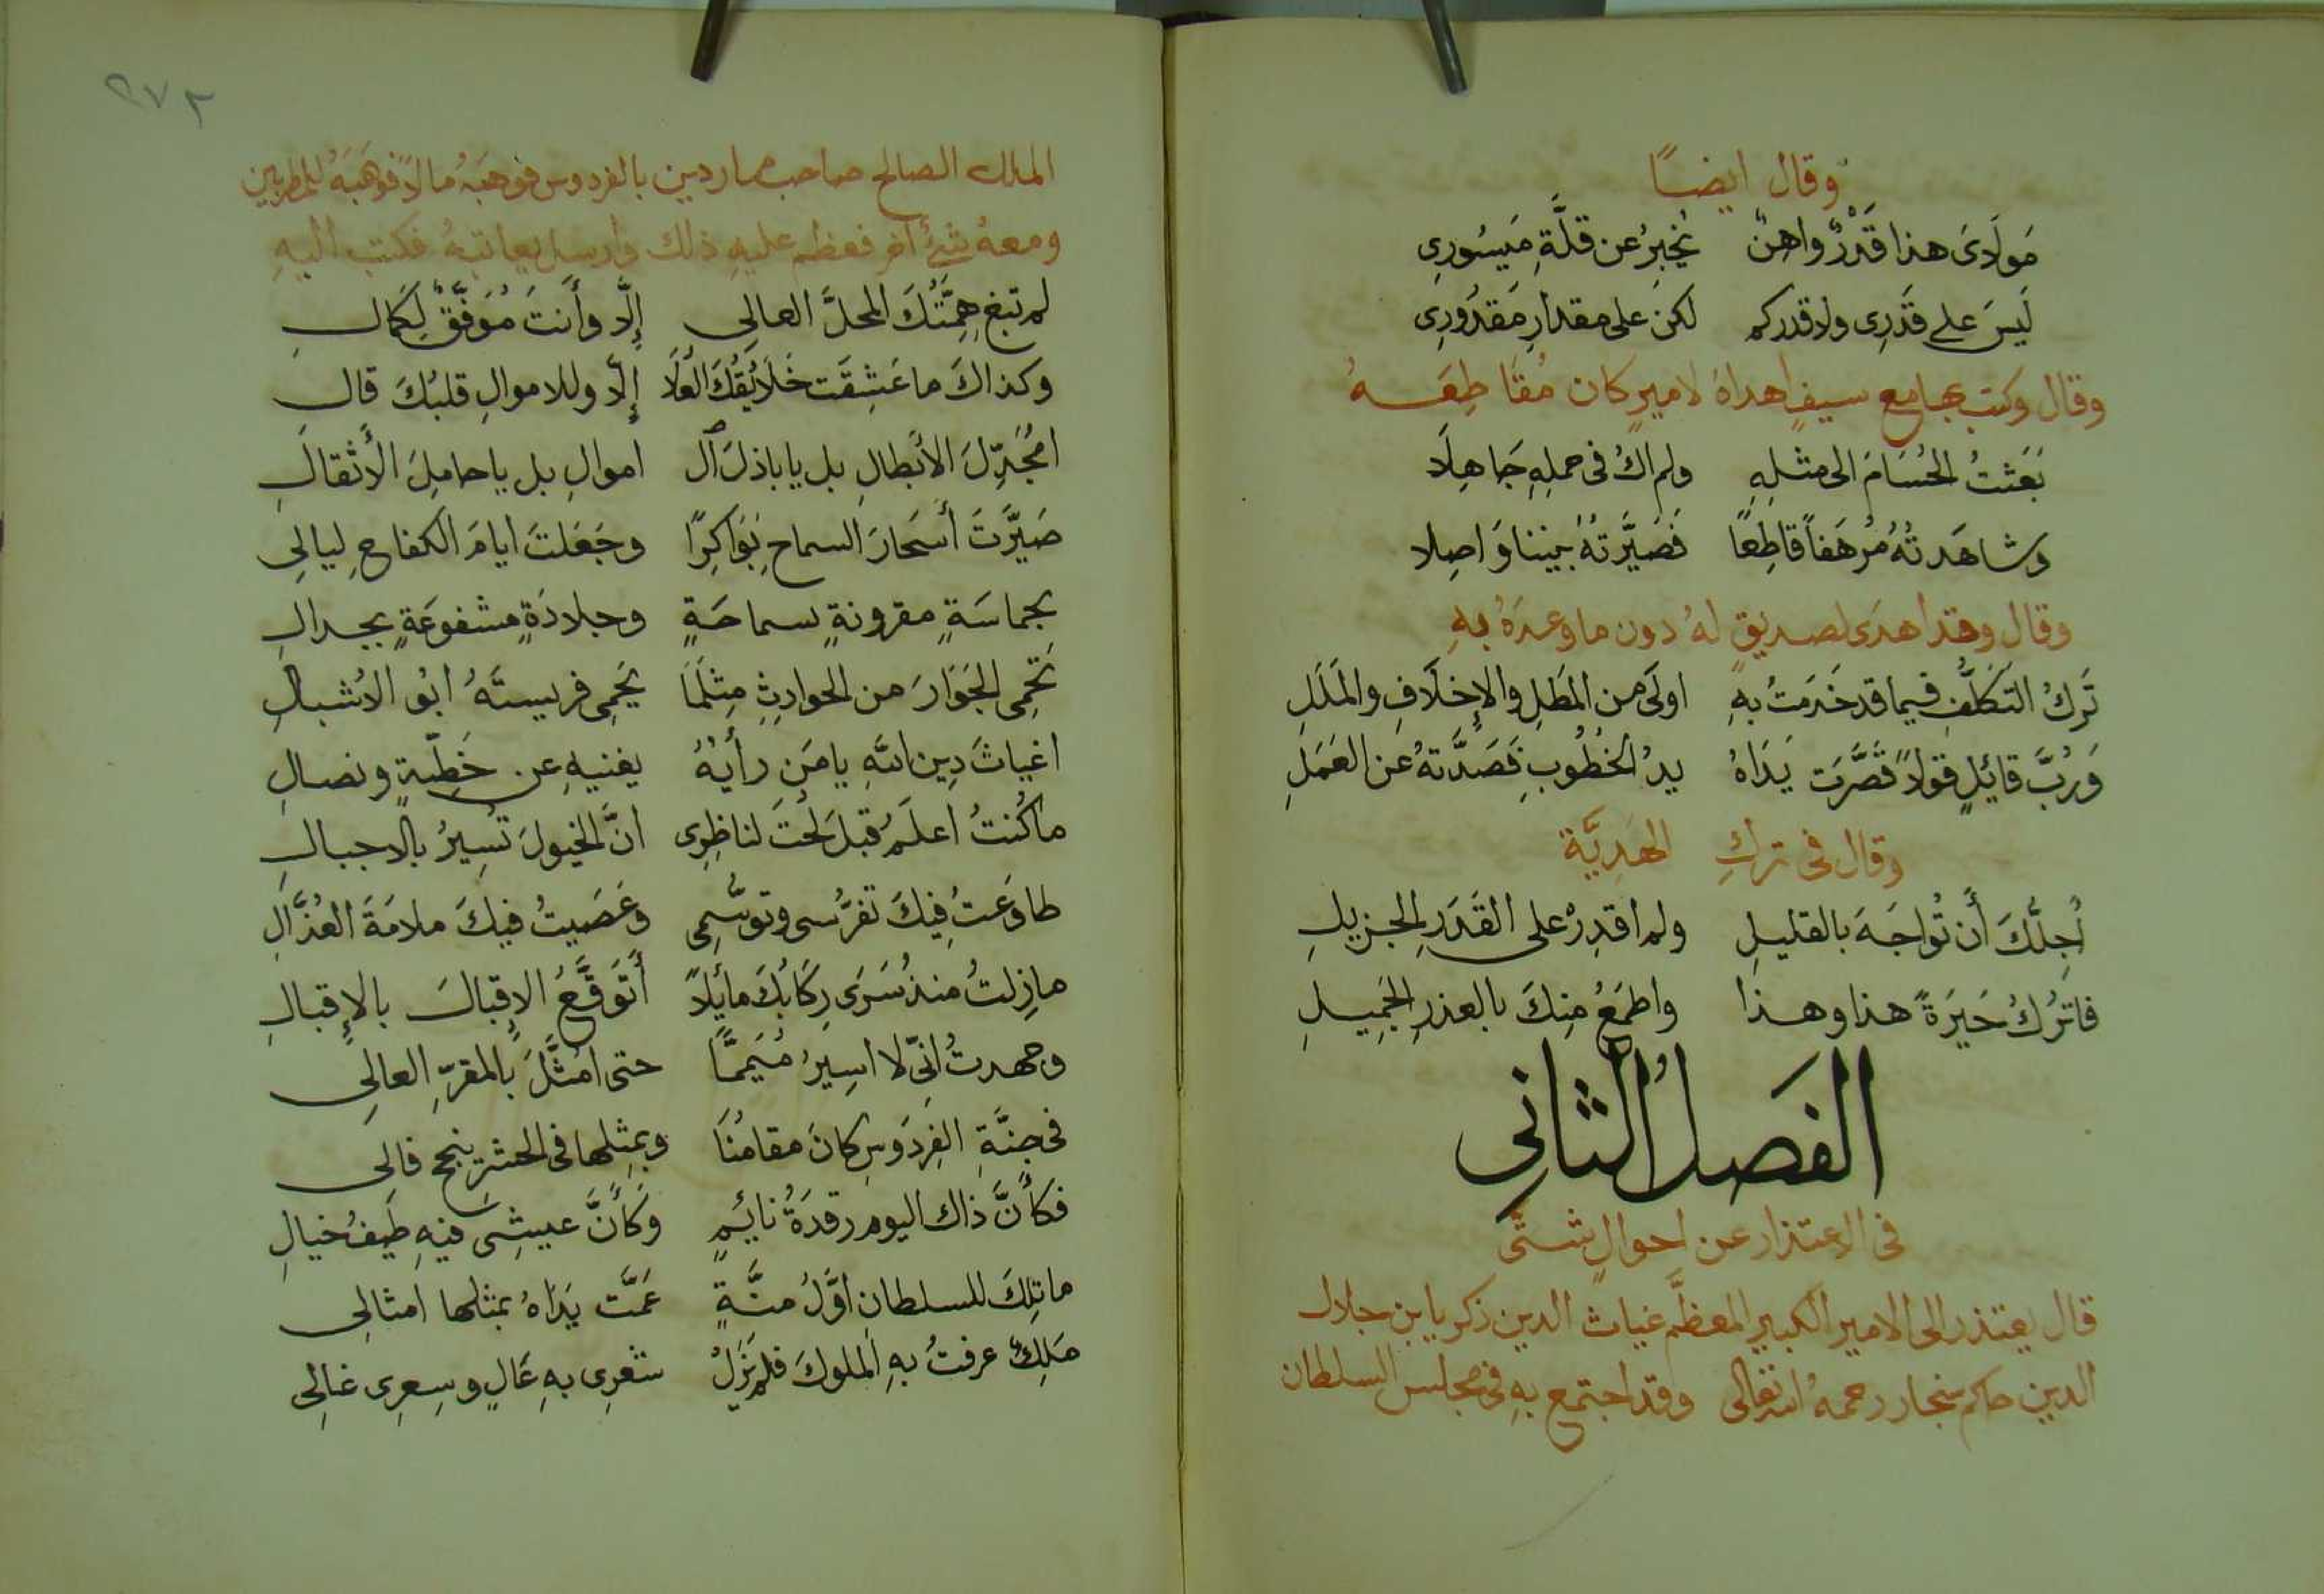 وقال ايضًا
مَولَايَ هذا قَدْرٌ واهِنٌ يُخبِرُ عن قلَّةِ مَيسُورِي
لَيسَ على قَدَرِي ولا قدركم لكن على مقدارِ مَقدُورِي
وقال وكتب بها مع سيفٍ اهداهُ لاميرٍ كان مُقَاطِعَهُ
بَعَثتُ الحُسَامَ الى مثلِهِ ولم اكُ في حملِهِ جَاهِلَا
وشاهَدتُهُ مُرهَفاً قاطِعًا فَصَيَّرتُهُ بيننا وَاصِلا
وقال وقد اهدَى لصديقٍ لهُ دون ما وعدَهُ بهِ
تَركُ التكلُّفِ فيما قد خَدَمتُ بهِ اولَى من المَطَلِ والإخلَافِ والمَلَلِ
وَرُبَّ قايئلٍ قولاً قَصَّرَت يَدَاهُ يدُ الخُطُوبِ فَصَدَّتهُ عن العَمَلِ
وقال في تركِ الهَدِيَّة
أُجِلُّكَ أَن تُواجَهَ بالقليلِ ولم اقدِرْ على القَدَرِ الجزيلِ
فاترُكُ حَيرَةً هذا وهذا واطمَعُ مِنكَ بالعذرِ الجَمِيلِ
الفَصلُ الثاني
في الاعتذار عن احوالٍ شتَّى
قال يعتذر الى الامير الكبير المعظَّم غياث الدين زكريا بن جلال
الدين حاكم سنجار رحمهُ الله تعالى وقد اجتمع بهِ في مجلس السلطان
٢٧٢
الملك الصالح صاحب ماردين بالفردوس فوهبَهُ مالاً فوهَبَهُ للمطربين
ومعهُ شئٌ آخر فعظم عليهِ ذلك وارسل يعاتبهُ فكتب اليهِ
لم تبغِ هِمَّتُكَ المحلَّ العالِي إلَّا وأَنتَ مُوَفَّقٌ لِكَمالِ
وكذاكَ ما عَشِقَت خَلَايُقُكَ العُلَا إلّا وللاموالِ قلبُكَ قالِ
امُجَدِّلَ الأبطالِ بل يا باذلَ ال اموالِ بل يا حامِلَ الأَثقالِ
صَيَّرتَ أَسحَارَ السماحِ بَوَاكِرًا وجَعَلتَ ايامَ الكفاحِ ليالِي
بحماسَةٍ مقرونةٍ بسماحَةٍ وجلادَةٍ مشفوعَةٍ بجدالِ
تَحْمِي الجَوَارَ من الحوادِثِ مِثلَمَا يَحمِي فريستَهُ ابُو الاشبالِ
اغياثَ دِينِ اللَّهِ يا مَن رأيُهُ يغنيهِ عن خَطِّيةٍ ونصالِ
ما كُنتُ اعلَمُ قبلَ لُحتَ لناظِرِي انَّ الخيولَ تَسِيرُ بالاجبالِ
طاوَعتُ فِيكَ تفرُّسى وتوسُّمِي وعَصَيتُ فيكَ ملامَةَ العُذَّالِ
مازِلتُ منذُ سَرَى رِكَابُكَ مائلاً أَتَوَقَّعُ الاِقبالَ بالإقبالِ
وجهدتُ انّي لا اسِيرُ مُيَمِّمًا حتى امثَّلَ بالمقرِّ العالِي
في جنَّةِ الفِردَوسِ كانَ مقامُنَا وبمِثلِها في الحشرِ ينجح فالِي
فكأَنَّ ذاك اليوم رقدَةُ نائمٍ وكأَنَّ عيشِي فيهِ طَيفُ خيالِ
ما تِلكَ للسلطانِ اوَّلُ منَّةٍ عَمَّت يَدَاهُ بمثلها امثالِي
مَلِكٌ عرفتُ بهِ الملوكَ فلم يَزَلْ شعرِي بهِ عَالٍ وسِعرِى غالِي